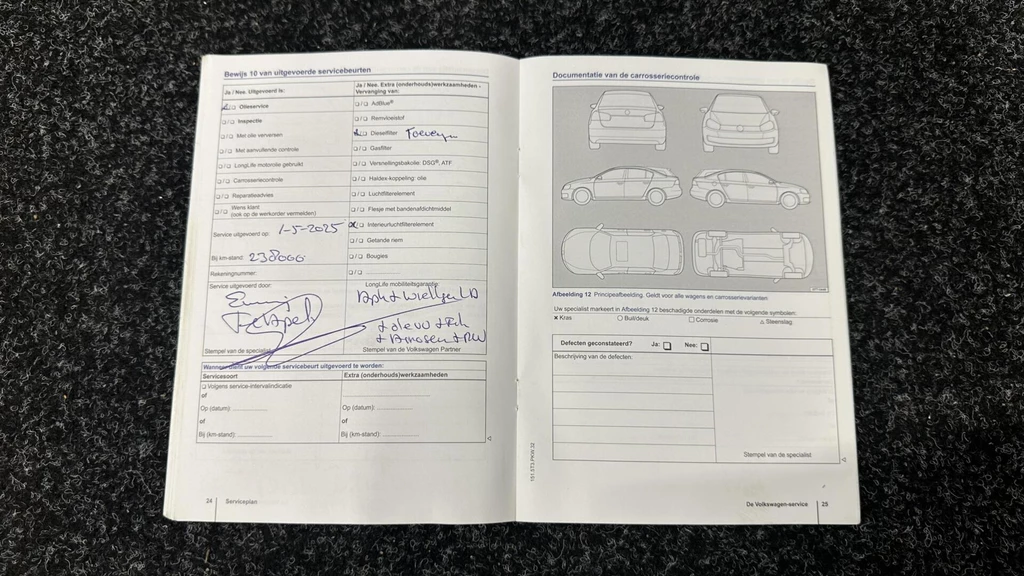 Bewijs 10 van uitgevoerde servicebeurten
Ja / Nee. Uitgevoerd is:
Olieservice
Inspectie
Met olie verversen
Met aanvullende controle
LongLife motorolie gebruikt
Carrosseriecontrole
Reparatieadvies
Wens klant
(ook op de werkorder vermelden)
Service uitgevoerd op: 1-5-2025
Bij km-stand: 238000
Rekeningnummer:
Service uitgevoerd door:
Stempel van de specialist
Ja / Nee. Extra (onderhouds)werkzaamheden -
Vervanging van:
AdBlue®
Remvloeistof
Dieselfilter
Gasfilter
Versnellingsbakolie: DSG®, ATF
Haldex-koppeling: olie
Luchtfilterelement
Flesje met bandenafdichtmiddel
Interieurluchtfilterelement
Getande riem
Bougies
LongLife mobiliteitsgarantie
Stempel van de Volkswagen Partner
Wanneer dient uw volgende servicebeurt uitgevoerd te worden:
Servicesoort
Volgens service-intervalindicatie
of
Op (datum):
of
Bij (km-stand):
Extra (onderhouds)werkzaamheden
Op (datum):
of
Bij (km-stand):
24 Serviceplan
Documentatie van de carrosseriecontrole
Afbeelding 12 Principeafbeelding. Geldt voor alle wagens en carrosserievarianten
Uw specialist markeert in Afbeelding 12 beschadigde onderdelen met de volgende symbolen:
x Kras ○ Buil/deuk □ Corrosie △ Steenslag
Defecten geconstateerd? Ja: Nee:
Beschrijving van de defecten:
Stempel van de specialist
151.5T3.PKW.32
De Volkswagen-service 25